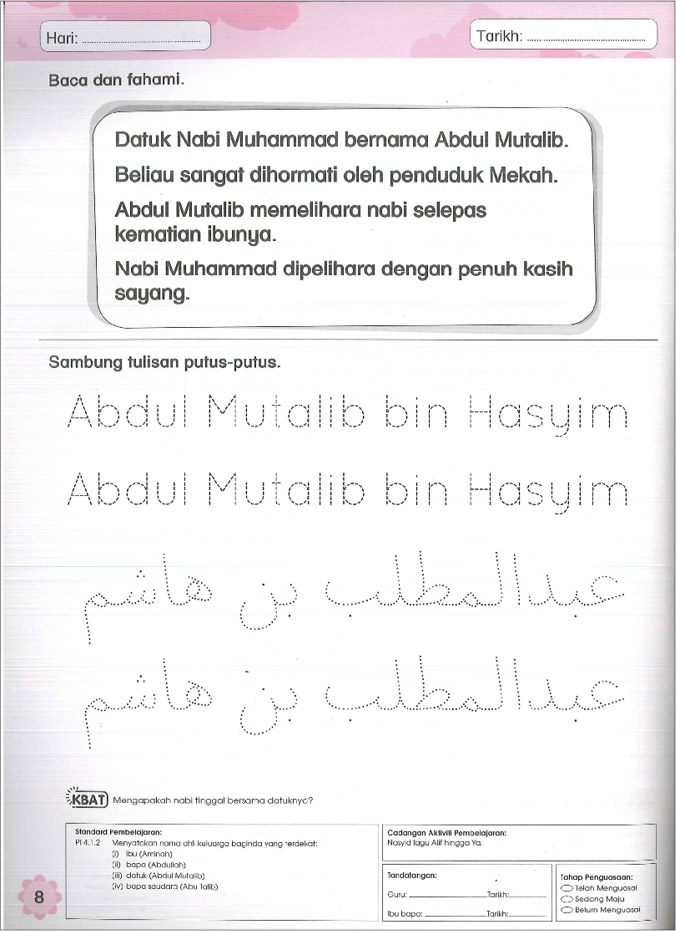 Hari: ........................................
Tarikh: ........................................
Baca dan fahami.
Datuk Nabi Muhammad bernama Abdul Mutalib.
Beliau sangat dihormati oleh penduduk Mekah.
Abdul Mutalib memelihara nabi selepas
kematian ibunya.
Nabi Muhammad dipelihara dengan penuh kasih
sayang.
Sambung tulisan putus-putus.
Abdul Mutalib bin Hasyim
Abdul Mutalib bin Hasyim
عبدالمطلب بن هاشم
عبدالمطلب بن هاشم
KBAT Mengapakah nabi tinggal bersama datuknya?
Standard Pembelajaran:
PI 4.1.2 Menyatakan nama ahli keluarga baginda yang terdekat:
(i) ibu (Aminah)
(ii) bapa (Abdullah)
(iii) datuk (Abdul Mutalib)
(iv) bapa saudara (Abu Talib)
Cadangan Aktiviti Pembelajaran:
Nasyid lagu Alif hingga Ya.
Tandatangan:
Guru: ____________ Tarikh: ________
Ibu bapa: ____________ Tarikh: ________
Tahap Penguasaan:
Telah Menguasai
Sedang Maju
Belum Menguasai
8